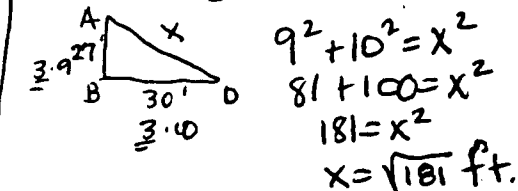 A
x
27'
3·9
B
30'
D
3·10
9²+10²=x²
81+100=x²
181=x²
x=√181 ft.